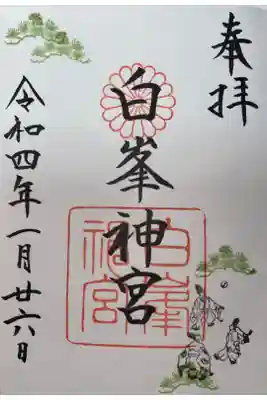 奉拝
白峯神宮
白峯神宮
令和四年一月廿六日